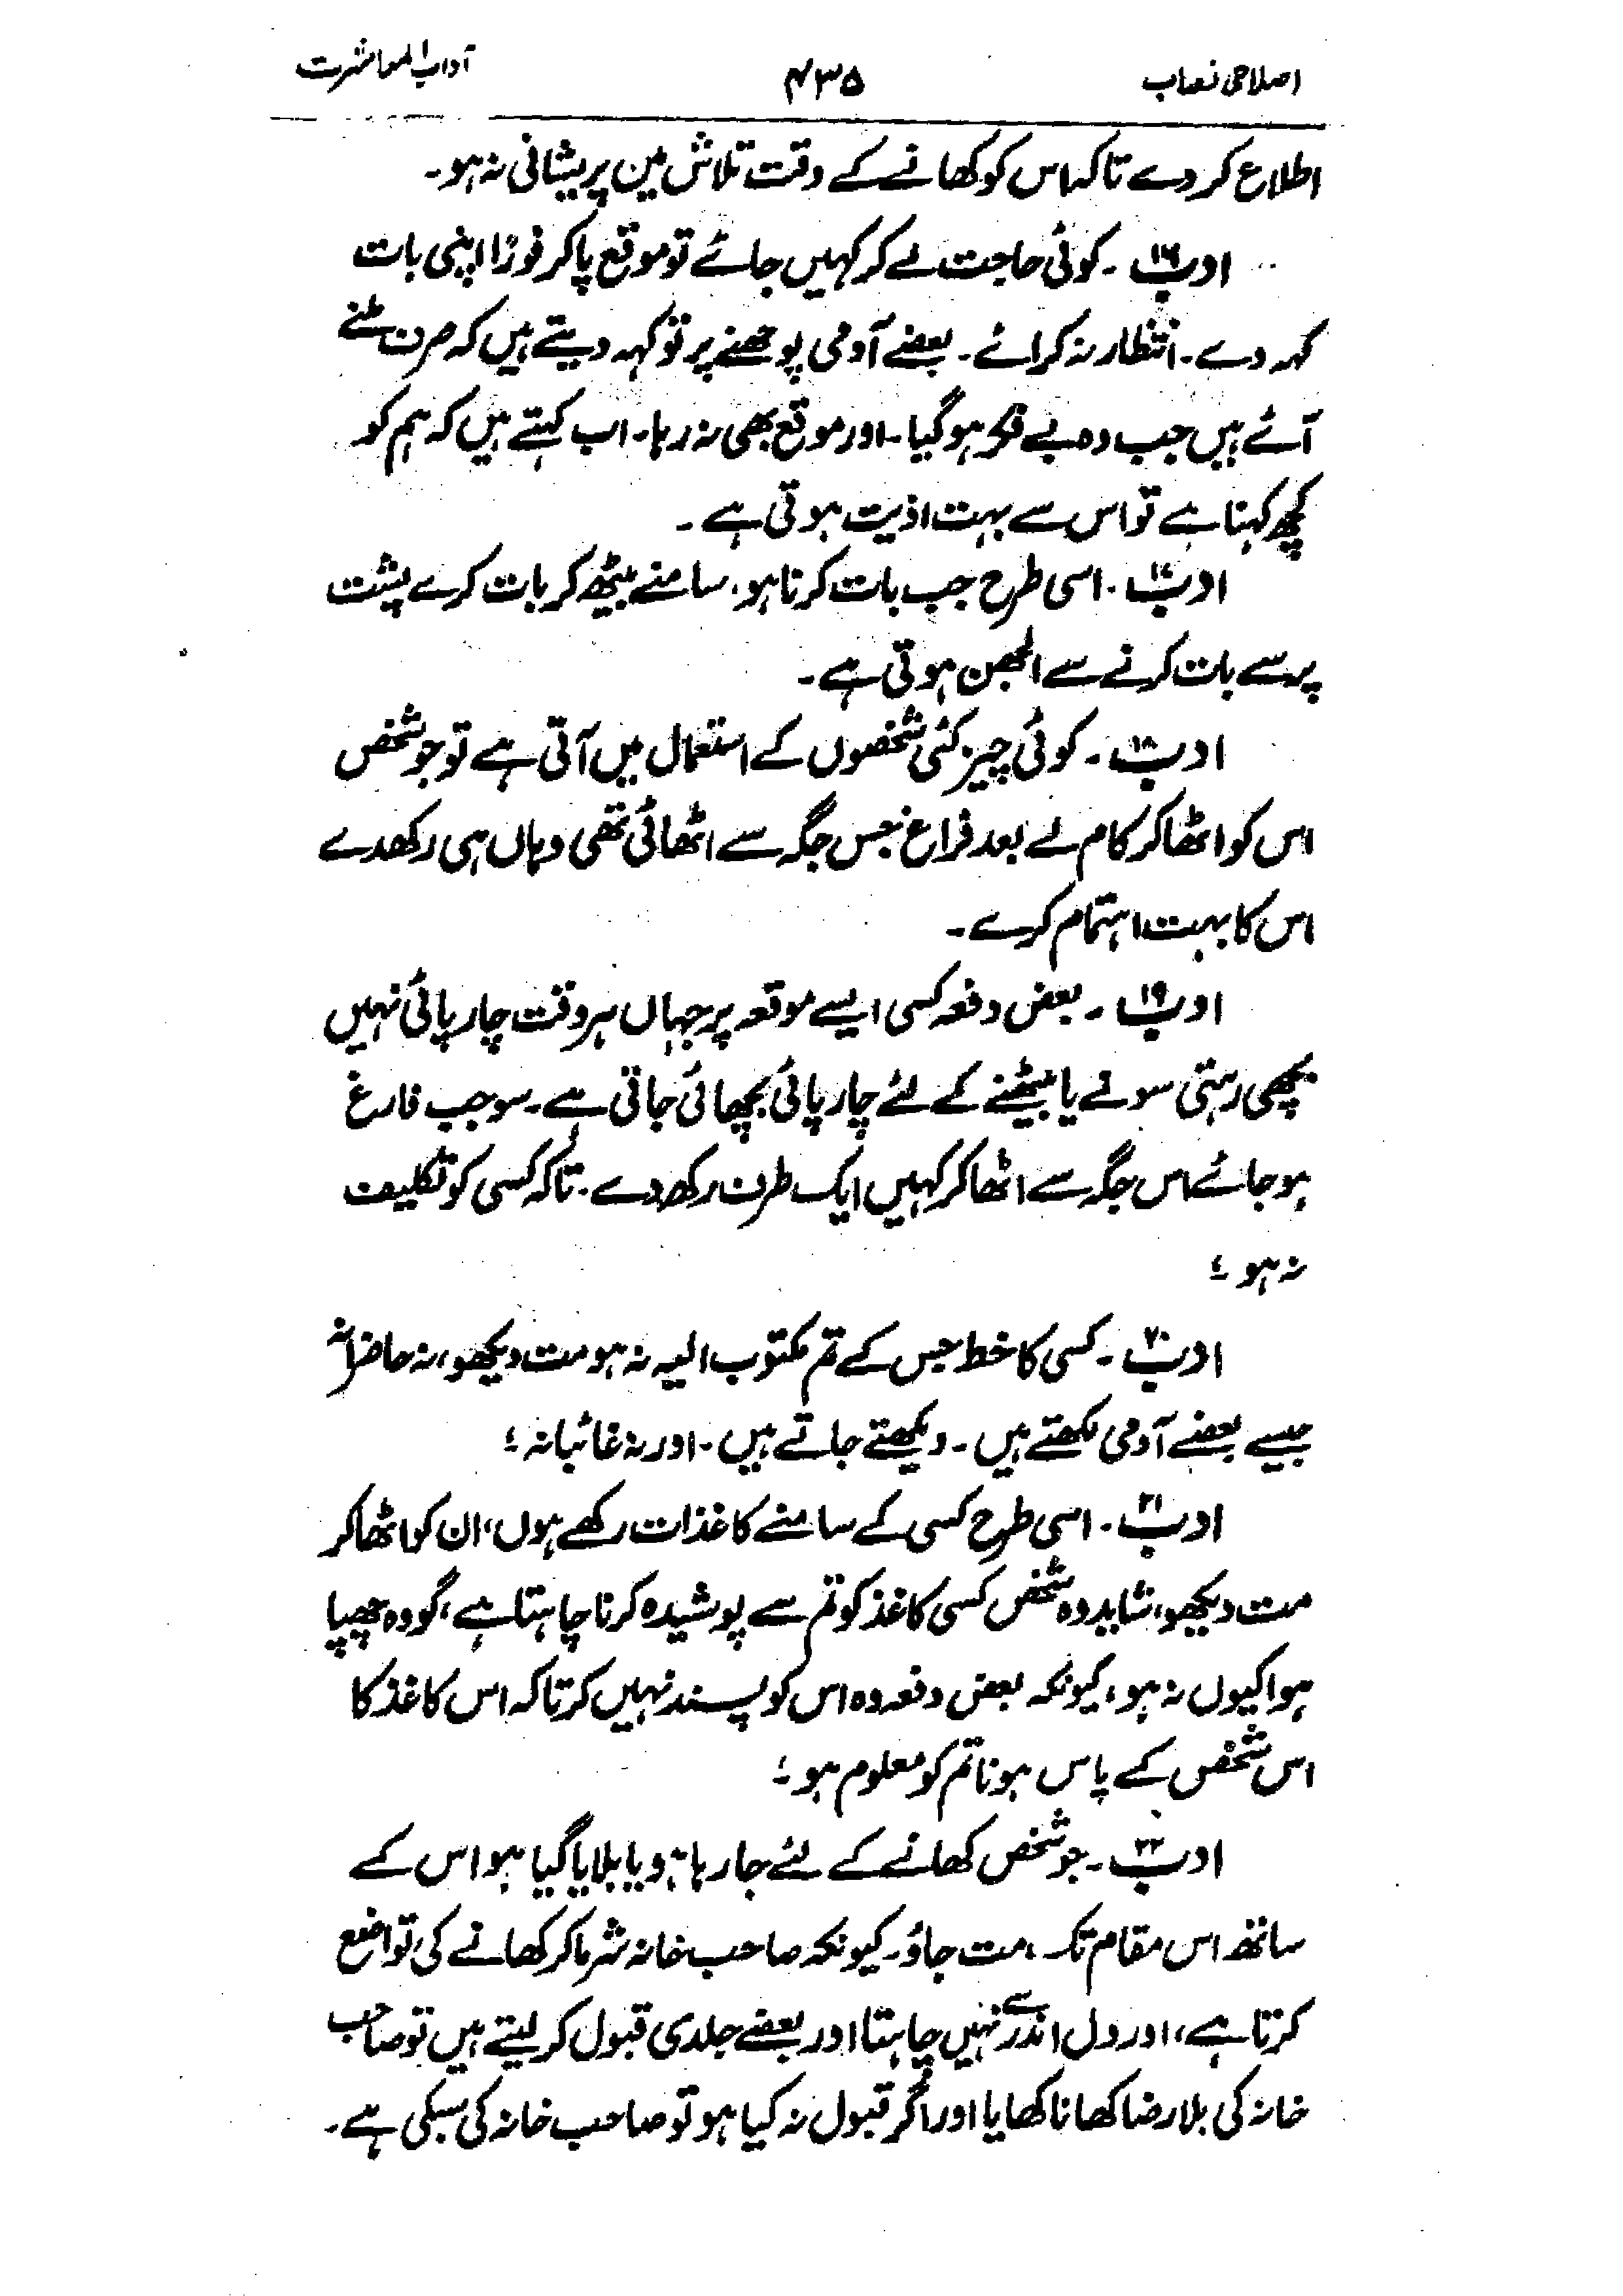 اصلاحی نصاب ۴۳۵ آداب المعاشرت
اطلاع کر دے تاکہ اس کو کھانے کے وقت تلاش میں پریشانی نہ ہو۔
ادب ۱۶۔ کوئی حاجت لے کر کہیں جائے تو موقع پا کر فوراً اپنی بات
کہہ دے۔ انتظار نہ کرائے۔ بعضے آدمی پوچھنے پر تو کہہ دیتے ہیں کہ صرف ملنے
آئے ہیں جب وہ بے فکر ہو گیا۔ اور موقع بھی نہ رہا۔ اب کہتے ہیں کہ ہم کو
کچھ کہنا ہے تو اس سے بہت اذیت ہوتی ہے۔
ادب ۱۷۔ اسی طرح جب بات کرنا ہو، سامنے بیٹھ کر بات کرے پشت
پر سے بات کرنے سے الجھن ہوتی ہے۔
ادب ۱۸۔ کوئی چیز کئی شخصوں کے استعمال میں آتی ہے تو جو شخص
اس کو اٹھا کر کام لے بعد فراغ جس جگہ سے اٹھائی تھی وہاں ہی رکھدے
اس کا بہت اہتمام کرے۔
ادب ۱۹۔ بعض دفعہ کسی ایسے موقعہ پر جہاں ہر وقت چارپائی نہیں
بچھی رہتی سونے یا بیٹھنے کے لئے چارپائی بچھائی جاتی ہے۔ سو جب فارغ
ہو جائے اس جگہ سے اٹھا کر کہیں ایک طرف رکھ دے۔ تاکہ کسی کو تکلیف
نہ ہو ؛
ادب ۲۰۔ کسی کا خط جس کے تم مکتوب الیہ نہ ہو مت دیکھو، نہ حاضرانہ
جیسے بعضے آدمی لکھتے ہیں۔ دیکھتے جاتے ہیں۔ اور نہ غائبانہ ؛
ادب ۲۱۔ اسی طرح کسی کے سامنے کاغذات رکھے ہوں، ان کو اٹھا کر
مت دیکھو، شاید وہ شخص کسی کاغذ کو تم سے پوشیدہ کرنا چاہتا ہے، گو وہ چھپا
ہوا کیوں نہ ہو، کیونکہ بعض دفعہ وہ اس کو پسند نہیں کرتا کہ اس کاغذ کا
اس شخص کے پاس ہونا تم کو معلوم ہو ؛
ادب ۲۲۔ جو شخص کھانے کے لئے جا رہا ہو یا بلایا گیا ہو اس کے
ساتھ اس مقام تک مت جاؤ۔ کیونکہ صاحب خانہ شرما کر کھانے کی تواضع
کرتا ہے، اور دل اندر سے نہیں چاہتا اور بعضے جلدی قبول کر لیتے ہیں تو صاحب
خانہ کی بلا رضا کھانا کھایا اور اگر قبول نہ کیا ہو تو صاحب خانہ کی سبکی ہے۔